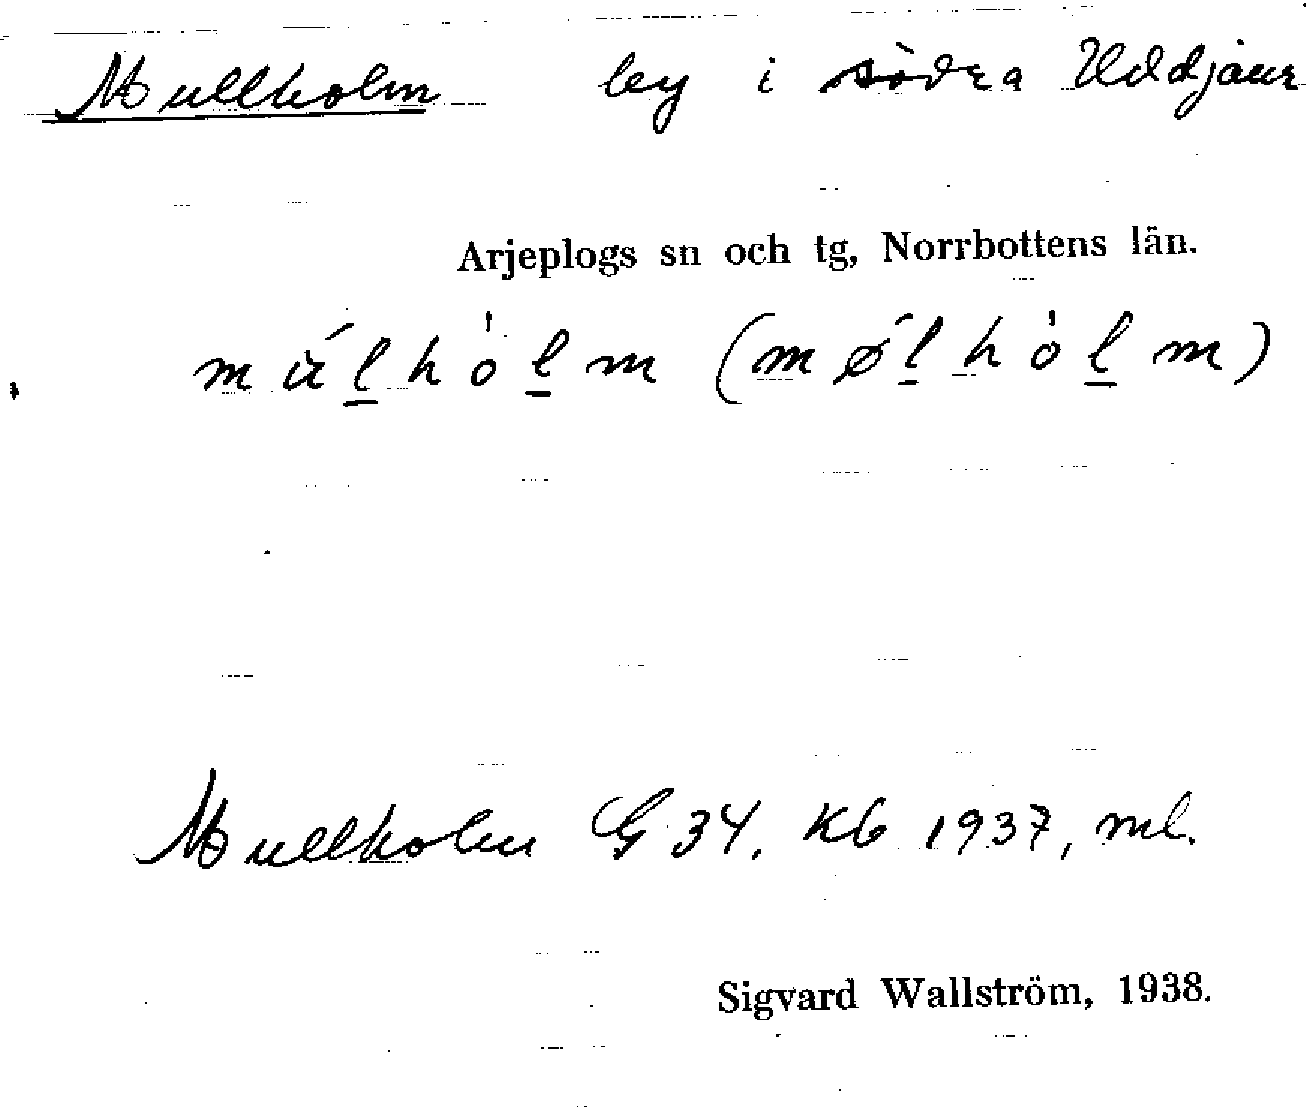 Mullholm by i södra Uddjaur
Arjeplogs sn och tg, Norrbottens län.
múl̲hòl̲m (møĺ̲hòl̲m)
Mullholm G 34. Kb 1937, ml.
Sigvard Wallström, 1938.